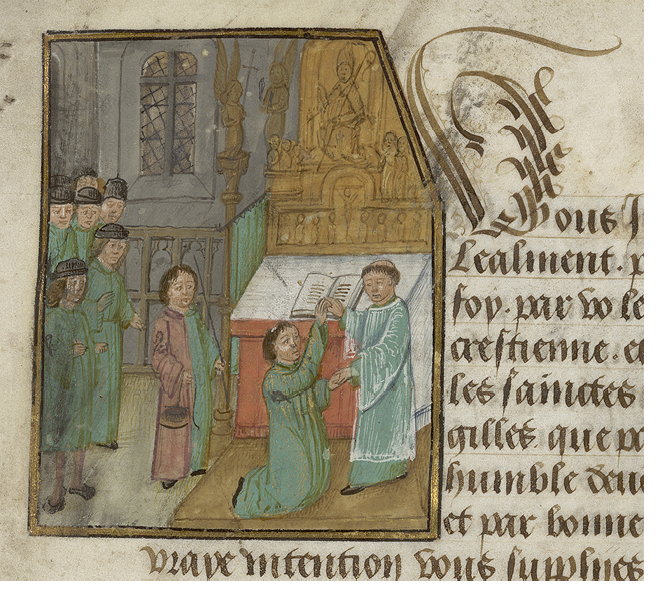 Vous J
Lealment. p
foy. par vo le
crestienne. et
les sainctes
gilles que po
humble deu
et par bonne
vraye intention vous supplies